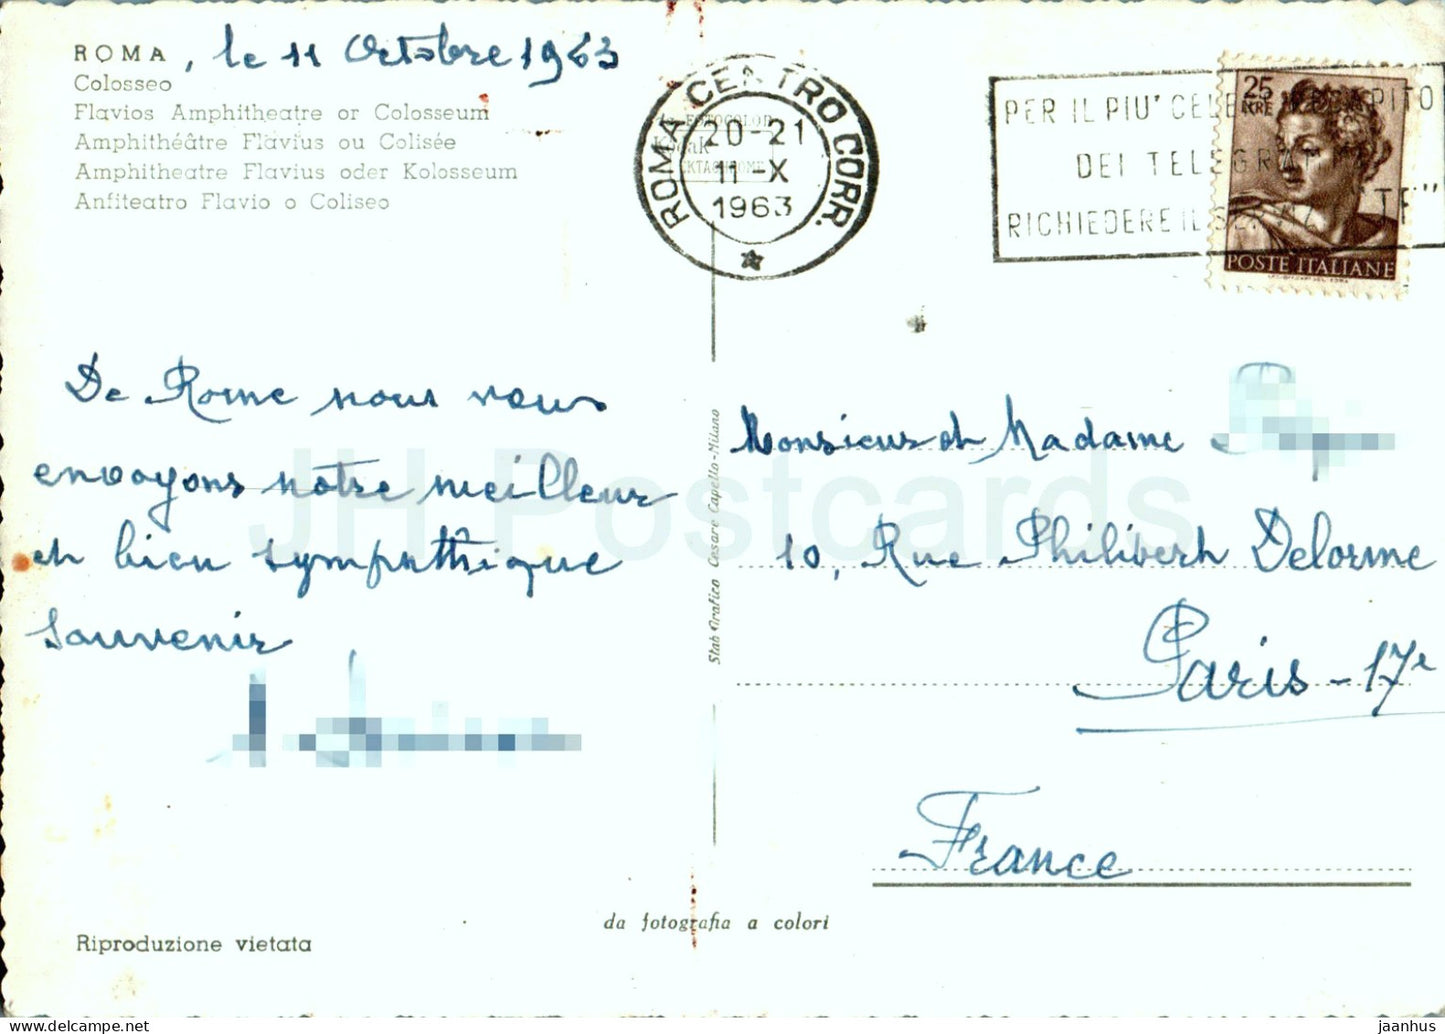 ROMA, le 11 Octobre 1963
Colosseo
Flavios Amphitheatre or Colosseum
Amphithéâtre Flavius ou Colisée
Amphitheatre Flavius oder Kolosseum
Anfiteatro Flavio o Coliseo
ROMA CENTRO CORR.
20-21
11-X
1963
FOTOCOLOR
Kodak
EKTACHROME
PER IL PIU' RECAPITO
DEI
RICHIEDERE IL
25
LIRE
POSTE ITALIANE
De Rome nous vous
envoyons notre meilleur
et bien sympathique
souvenir
Stab Grafico Cesare Capello-Milano
Monsieur et Madame
10, Rue Philibert Delorme
Paris-17e
France
da fotografia a colori
Riproduzione vietata
JH Postcards
delcampe.net
jaanhus